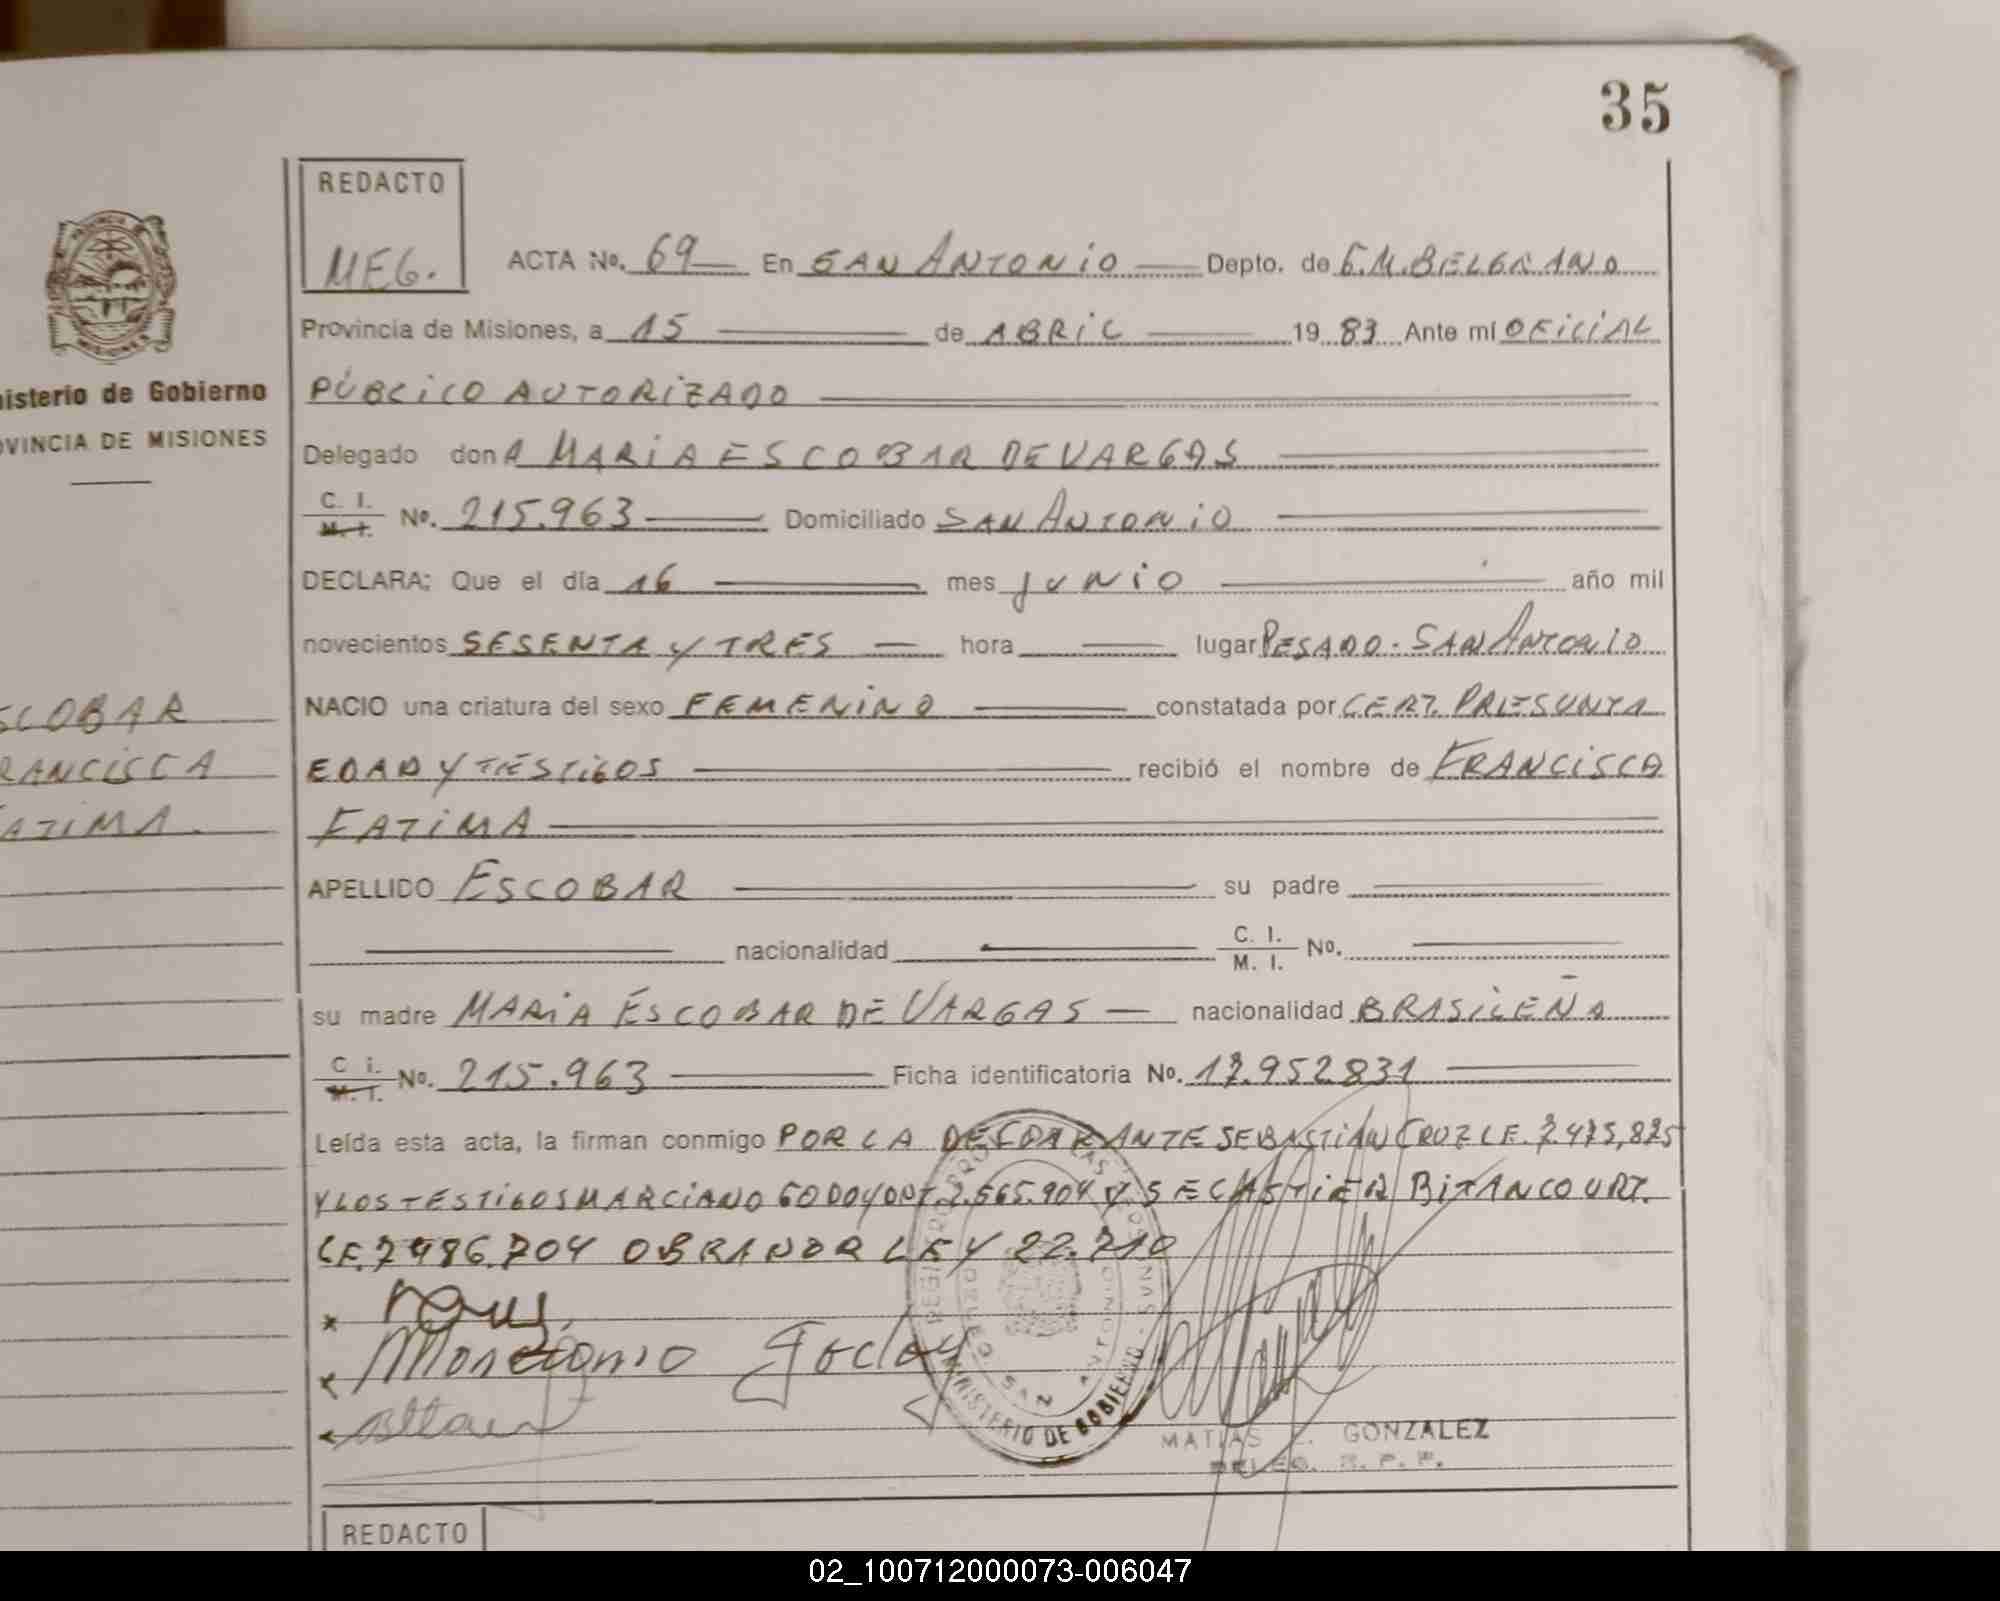 35
REDACTO
MEG.
ACTA No. 69 En SAN ANTONIO Depto. de G.M.BELGRANO
Provincia de Misiones, a 15 de ABRIL 19 83 Ante mí OFICIAL
PÚBLICO AUTORIZADO
Delegado don A MARIA ESCOBAR DE VARGAS
C. I. M. I. No. 215.963 Domiciliado SAN ANTONIO
DECLARA: Que el día 16 mes JUNIO año mil
novecientos SESENTA Y TRES hora lugar PESADO - SAN ANTONIO
NACIO una criatura del sexo FEMENINO constatada por CERT. PRESUNTA
EDAD Y TESTIGOS recibió el nombre de FRANCISCA
FATIMA
APELLIDO ESCOBAR su padre
nacionalidad C. I. M. I. No.
su madre MARIA ESCOBAR DE VARGAS nacionalidad BRASILEÑA
C. I. M. I. No. 215.963 Ficha identificatoria No. 17.952831
Leída esta acta, la firman conmigo POR LA DECLARANTE SEBASTIAN CRUZ LE. 7.475,875
Y LOS TESTIGOS MARCIANO GODOY DNI 7.565.904 Y SEBASTIAN BITANCOURT.
LE. 7486.704 OBRANDO LEY 22.710
Godoy
REGISTRO PROVINCIAL DE LAS PERSONAS
SAN ANTONIO
MINISTERIO DE GOBIERNO
MATIAS GONZALEZ
DELEG. R. P. P.
REDACTO
MISIONES
nisterio de Gobierno
OVINCIA DE MISIONES
SCOBAR
RANCISCA
FATIMA.
02_100712000073-006047